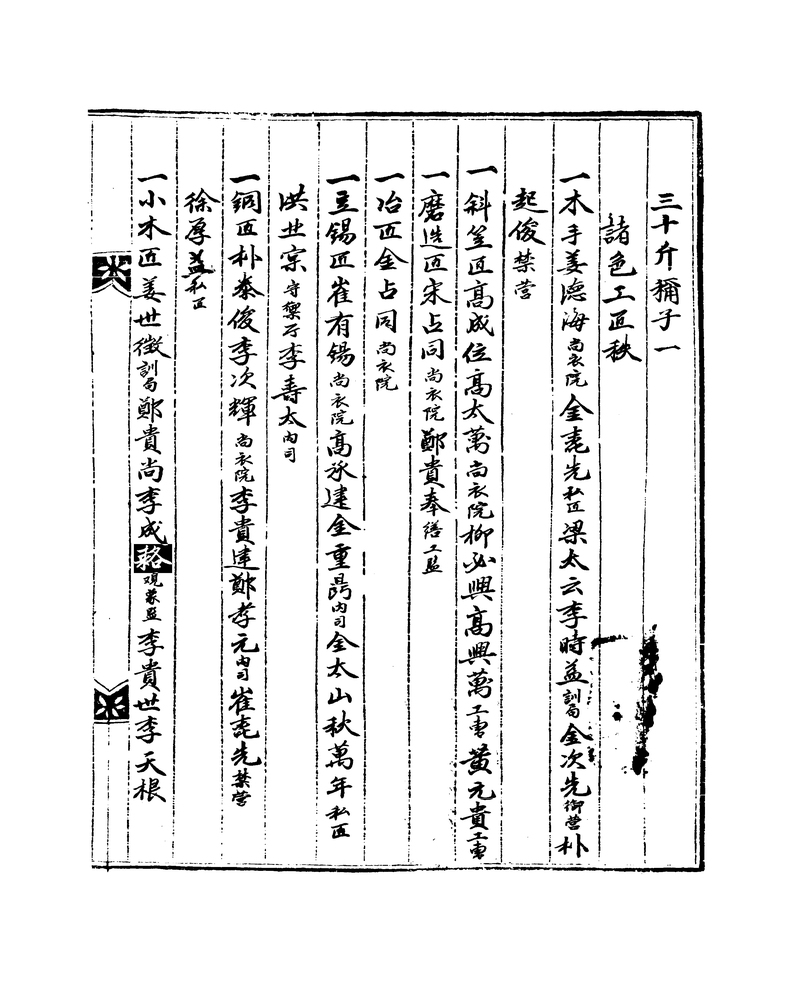 三十斤稱子一
諸色工匠秩
一木手姜德海尚衣院金先私匠梁太云李時益訓局金次先御營朴
起俊禁營
一斜笠匠高成位高太萬尚衣院柳必興高興萬工曹黃元貴工曹
一磨造匠宋占同尚衣院鄭貴奉繕工監
一冶匠金占同尚衣院
一豆錫匠崔有錫尚衣院高承建金重鼎內司金太山秋萬年私匠
洪世宗守禦厅李壽太內司
一銅匠朴泰俊李次輝尚衣院李貴建鄭孝元內司崔先禁營
徐厚益私匠
一小木匠姜世徵訓局鄭貴尚李成輅觀象監李貴世李天根